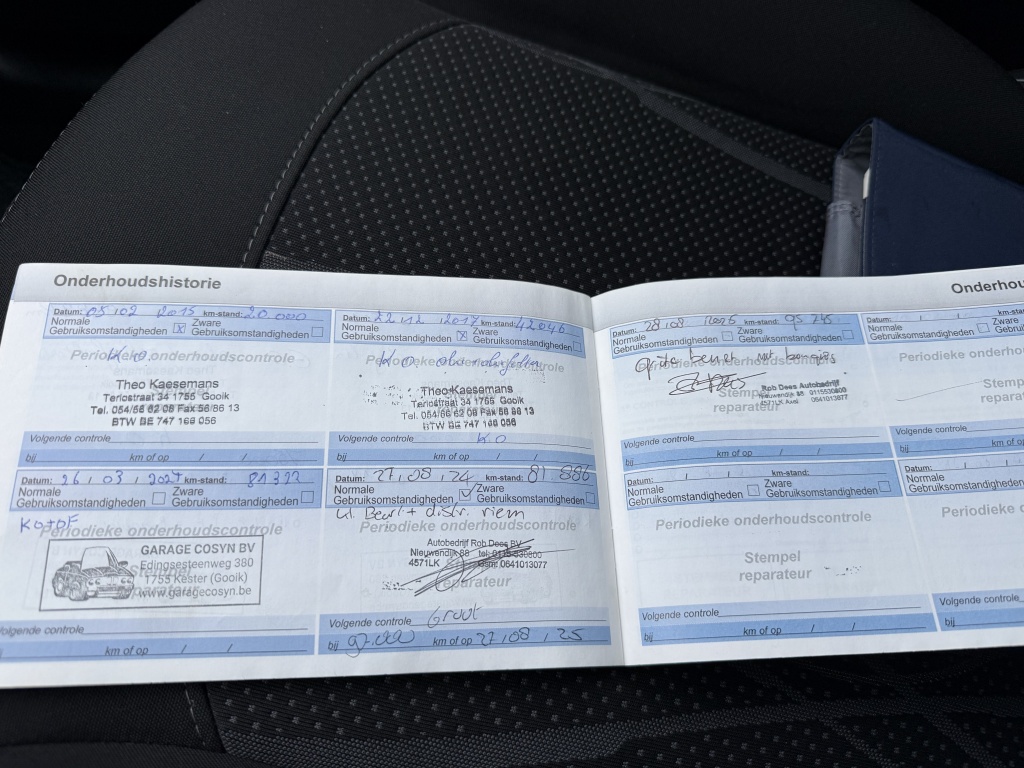 Onderhoudshistorie
Datum: 05, 02 2015 km-stand: 20.000
Normale Gebruiksomstandigheden X Zware Gebruiksomstandigheden
Periodieke onderhoudscontrole
K.O.
Theo Kaesemans
Teriostraat 34 1755 Gooik
Tel. 054/56 62 08 Fax 56/86 13
BTW BE 747 166 056
Volgende controle
bij km of op / /
Datum: 22, 12, 2017 km-stand: 42046
Normale Gebruiksomstandigheden X Zware Gebruiksomstandigheden
Periodieke onderhoudscontrole
K.O.
Theo Kaesemans
Teriostraat 34 1755 Gooik
Tel. 054/56 62 08 Fax 56 86 13
BTW BE 747 166 056
Volgende controle K.O
bij km of op / /
Datum: 26, 03, 2024 km-stand: 81322
Normale Gebruiksomstandigheden Zware Gebruiksomstandigheden
Periodieke onderhoudscontrole
KO+DF
GARAGE COSYN BV
Edingsesteenweg 380
1755 Kester (Gooik)
www.garagecosyn.be
Volgende controle
bij km of op / /
Datum: 27, 08, 24 km-stand: 81.886
Normale Gebruiksomstandigheden Zware Gebruiksomstandigheden
kl. Beurt + distr. riem
Periodieke onderhoudscontrole
Autobedrijf Rob Dees BV
Nieuwendijk 88 tel:
4571LK 0641013077
reparateur
Volgende controle Groot
bij 97.000 km of op 27, 08, 25
Onderhou
Datum: 28, 08 2025 km-stand:
Normale Gebruiksomstandigheden Zware Gebruiksomstandigheden
Periodieke onderhoudscontrole
grote beurt met
Stempel
reparateur
Rob Dees Autobedrijf
Nieuwendijk 88 0115530800
4571LK Axel 0641013077
Volgende controle
bij km of op / /
Datum:
Normale
Gebruiksomstandigheden
Periodieke onderhoud
Stemp
repara
Volgende controle
bij km of
Datum: km-stand:
Normale Gebruiksomstandigheden Zware Gebruiksomstandigheden
Periodieke onderhoudscontrole
Stempel
reparateur
Volgende controle
bij km of op / /
Datum:
Normale
Gebruiksomstandigheden
Periodieke onde
Volgende controle
bij